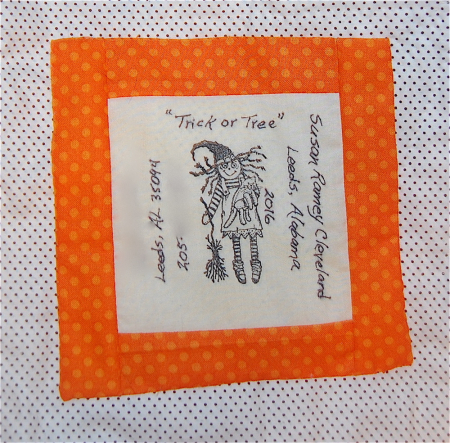 "Trick or Tree"
Susan Ranney Cleveland
Leeds, Alabama
2016
Leeds, AL 35094
205-